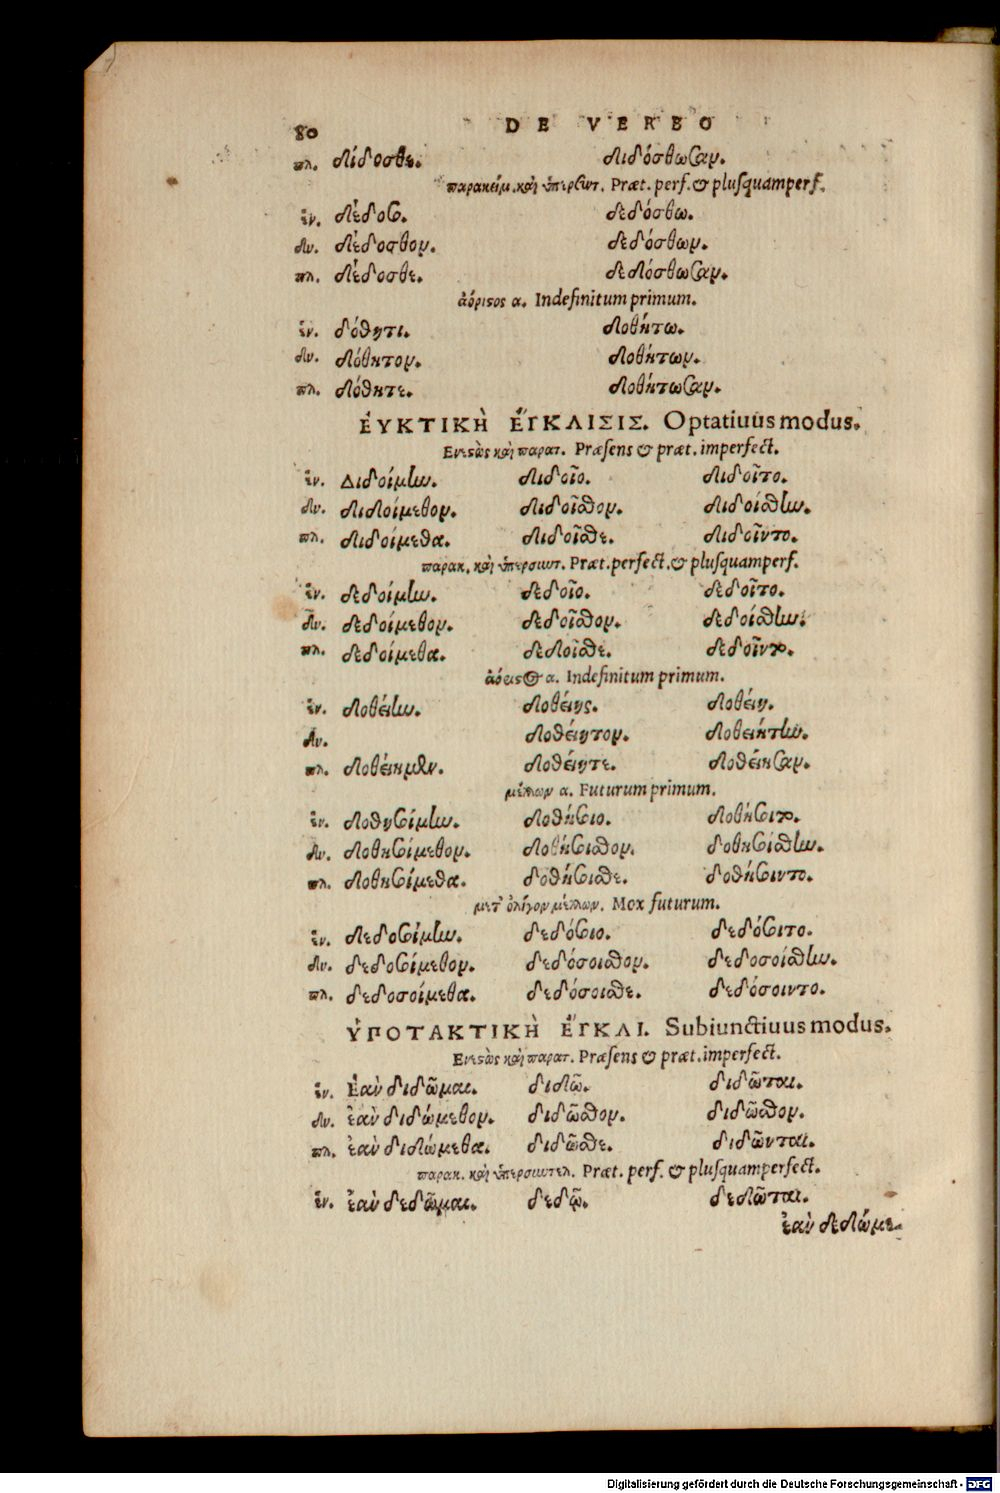 80 DE VERBO
πλ. δίδοσθε. διδόσθωσαν.
παρακείμ. καὶ ὑπερσυντ. Præt. perf. & plusquamperf.
ἑν. δέδοσο. δεδόσθω.
δυ. δέδοσθον. δεδόσθων.
πλ. δέδοσθε. δεδόσθωσαν.
ἀόριστος α. Indefinitum primum.
ἑν. δόθητι. δοθήτω.
δυ. δόθητον. δοθήτων.
πλ. δόθητε. δοθήτωσαν.
ἘΥΚΤΙΚῊ ἜΓΚΛΙΣΙΣ. Optatiuus modus.
Ενεστὼς καὶ παρατ. Præsens & præt. imperfect.
ἑν. Διδοίμην. διδοῖο. διδοῖτο.
δυ. διδοίμεθον. διδοῖσθον. διδοίσθην.
πλ. διδοίμεθα. διδοῖσθε. διδοῖντο.
παρακ. καὶ ὑπερσυντ. Præt. perfect. & plusquamperf.
ἑν. δεδοίμην. δεδοῖο. δεδοῖτο.
δυ. δεδοίμεθον. δεδοῖσθον. δεδοίσθην.
πλ. δεδοίμεθα. δεδοῖσθε. δεδοῖντο.
ἀόριστος α. Indefinitum primum.
ἑν. δοθείην. δοθείης. δοθείη.
δυ. δοθείητον. δοθειήτην.
πλ. δοθείημεν. δοθείητε. δοθείησαν.
μέλλων α. Futurum primum.
ἑν. δοθησοίμην. δοθήσοιο. δοθήσοιτο.
δυ. δοθησοίμεθον. δοθήσοισθον. δοθησοίσθην.
πλ. δοθησοίμεθα. δοθήσοισθε. δοθήσοιντο.
μετ' ὀλίγον μέλλων. Mox futurum.
ἑν. δεδοσοίμην. δεδόσοιο. δεδόσοιτο.
δυ. δεδοσοίμεθον. δεδόσοισθον. δεδοσοίσθην.
πλ. δεδοσοίμεθα. δεδόσοισθε. δεδόσοιντο.
ὙΠΟΤΑΚΤΙΚῊ ἜΓΚΛΙ. Subiunctiuus modus.
Ενεστὼς καὶ παρατ. Præsens & præt. imperfect.
ἑν. Ἐὰν διδῶμαι. διδῶ. διδῶται.
δυ. ἐὰν διδώμεθον. διδῶσθον. διδῶσθον.
πλ. ἐὰν διδώμεθα. διδῶσθε. διδῶνται.
παρακ. καὶ ὑπερσυντελ. Præt. perf. & plusquamperfect.
ἑν. ἐὰν δεδῶμαι. δεδῷ. δεδῶται.
ἐὰν δεδώμε-
Digitalisierung gefördert durch die Deutsche Forschungsgemeinschaft - DFG